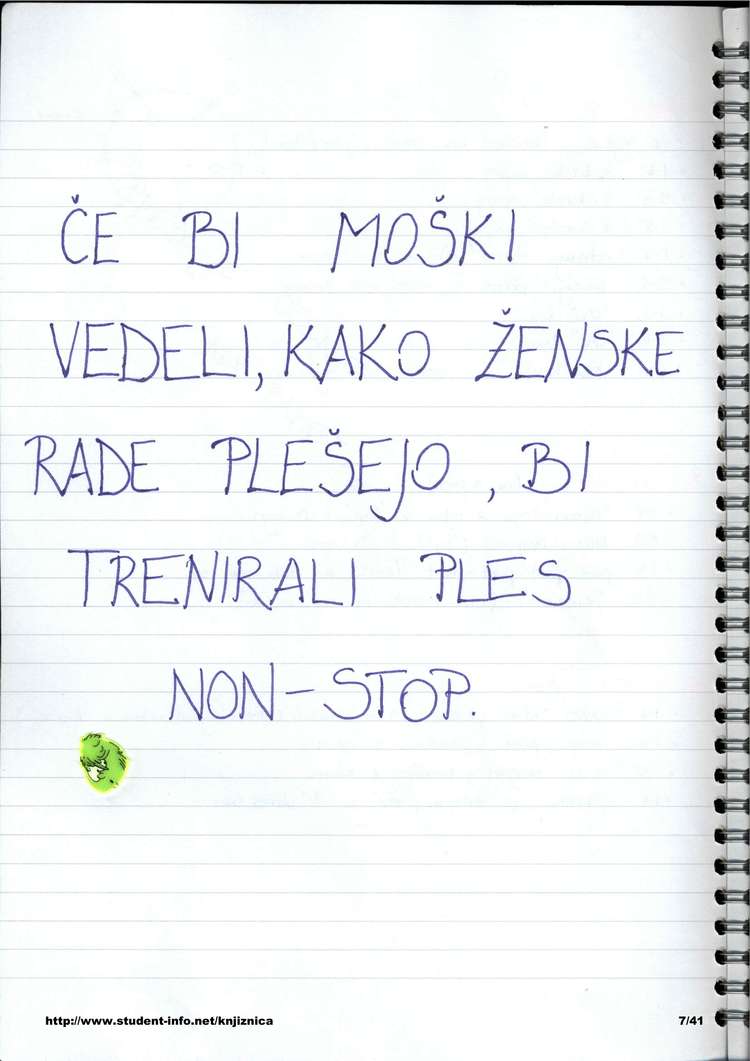 ČE BI MOŠKI
VEDELI, KAKO ŽENSKE
RADE PLEŠEJO, BI
TRENIRALI PLES
NON-STOP.
http://www.student-info.net/knjiznica 7/41